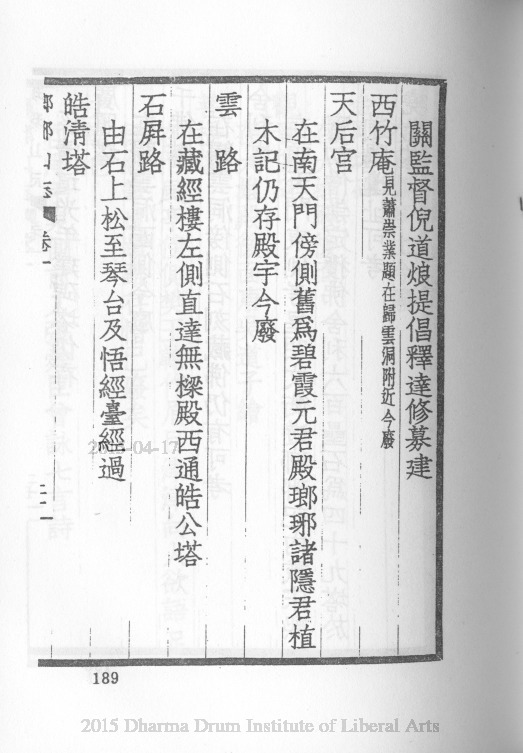 關監督倪道烺提倡釋達修募建
西竹庵見蕭崇業題在歸雲洞附近今廢
天后宮
在南天門傍側舊爲碧霞元君殿瑯琊諸隱君植
木記仍存殿宇今廢
雲路
在藏經樓左側直達無樑殿西通皓公塔
石屏路
由石上松至琴台及悟經臺經過
皓清塔
瑯琊山志 卷一 二一
189
2015-04-17
2015 Dharma Drum Institute of Liberal Arts